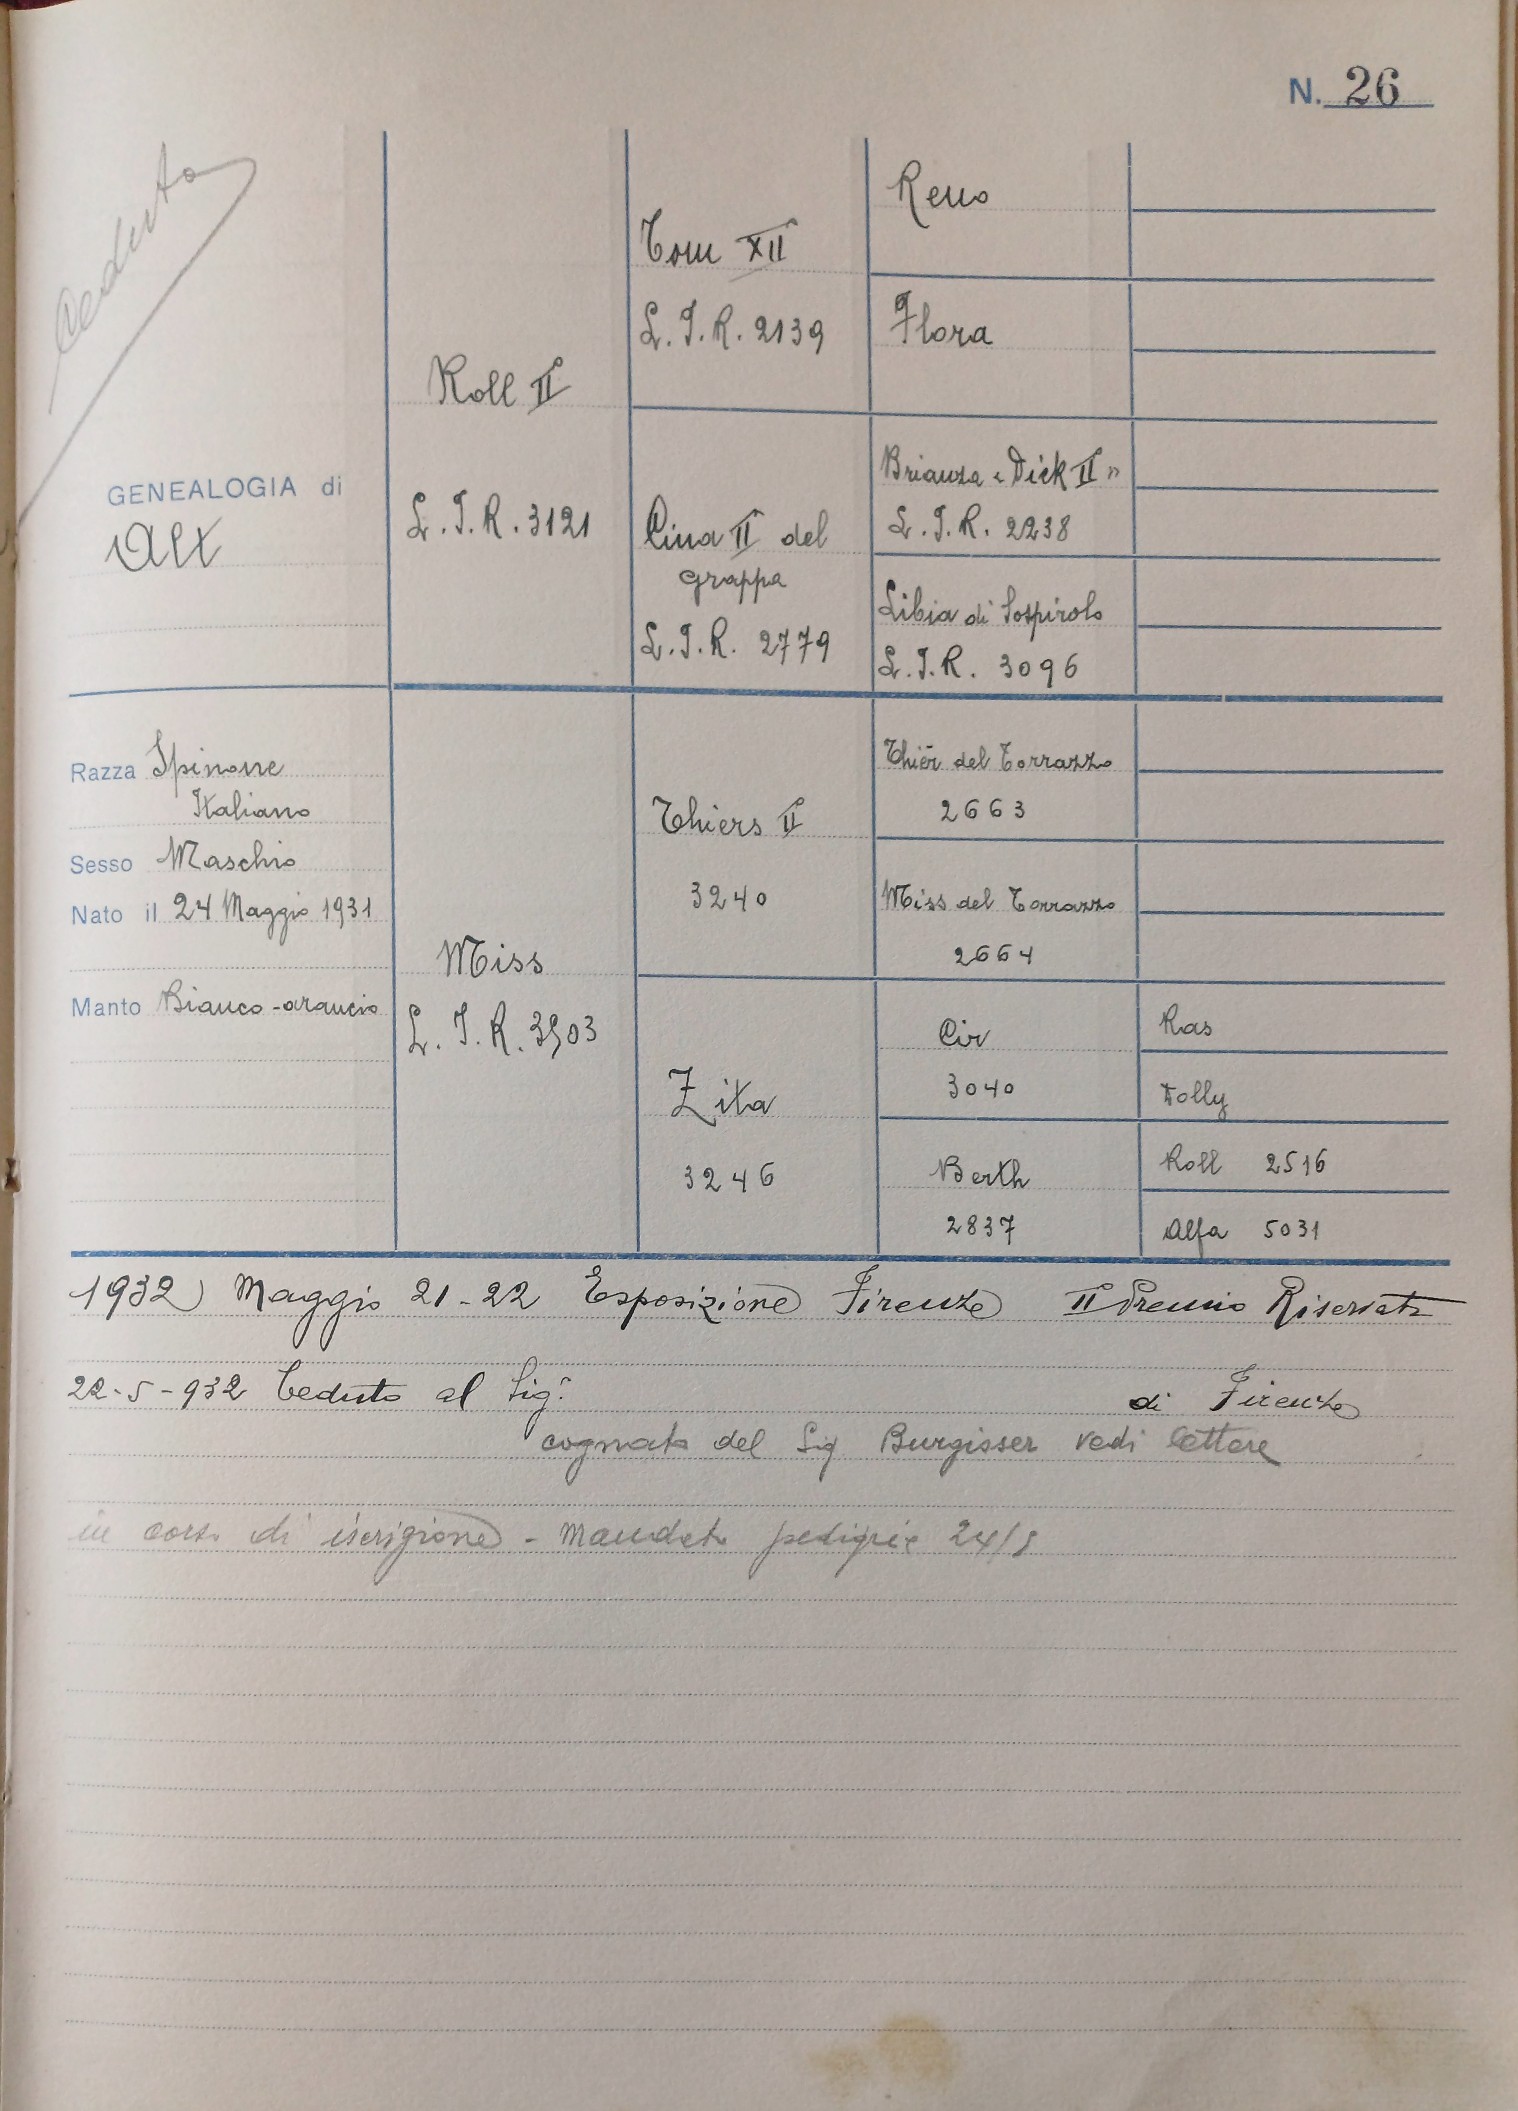 N. 26
Ceduto
GENEALOGIA di
Alt
Razza Spinone
Italiano
Sesso Maschio
Nato il 24 Maggio 1931
Manto Bianco-arancio
Roll II
L.I.R. 3121
Miss
L.I.R. 3903
Tom XII
L.I.R. 2139
Cina II del
grappa
L.I.R. 2779
Thiers II
3240
Zita
3246
Reno
Flora
Brianza "Dick II"
L.I.R. 2238
Libia di Sospirolo
L.I.R. 3096
Thier del Torrazzo
2663
Miss del Torrazzo
2664
Cir
3040
Berth
2837
Ras
Dolly
Roll 2516
Alfa 5031
1932) Maggio 21-22 Esposizione Firenze II Premio Riservato
22-5-932 Ceduto al Sig. di Firenze
cognato del Sig Burgisser vedi lettere
in corso di iscrizione - Mandato pedigrie